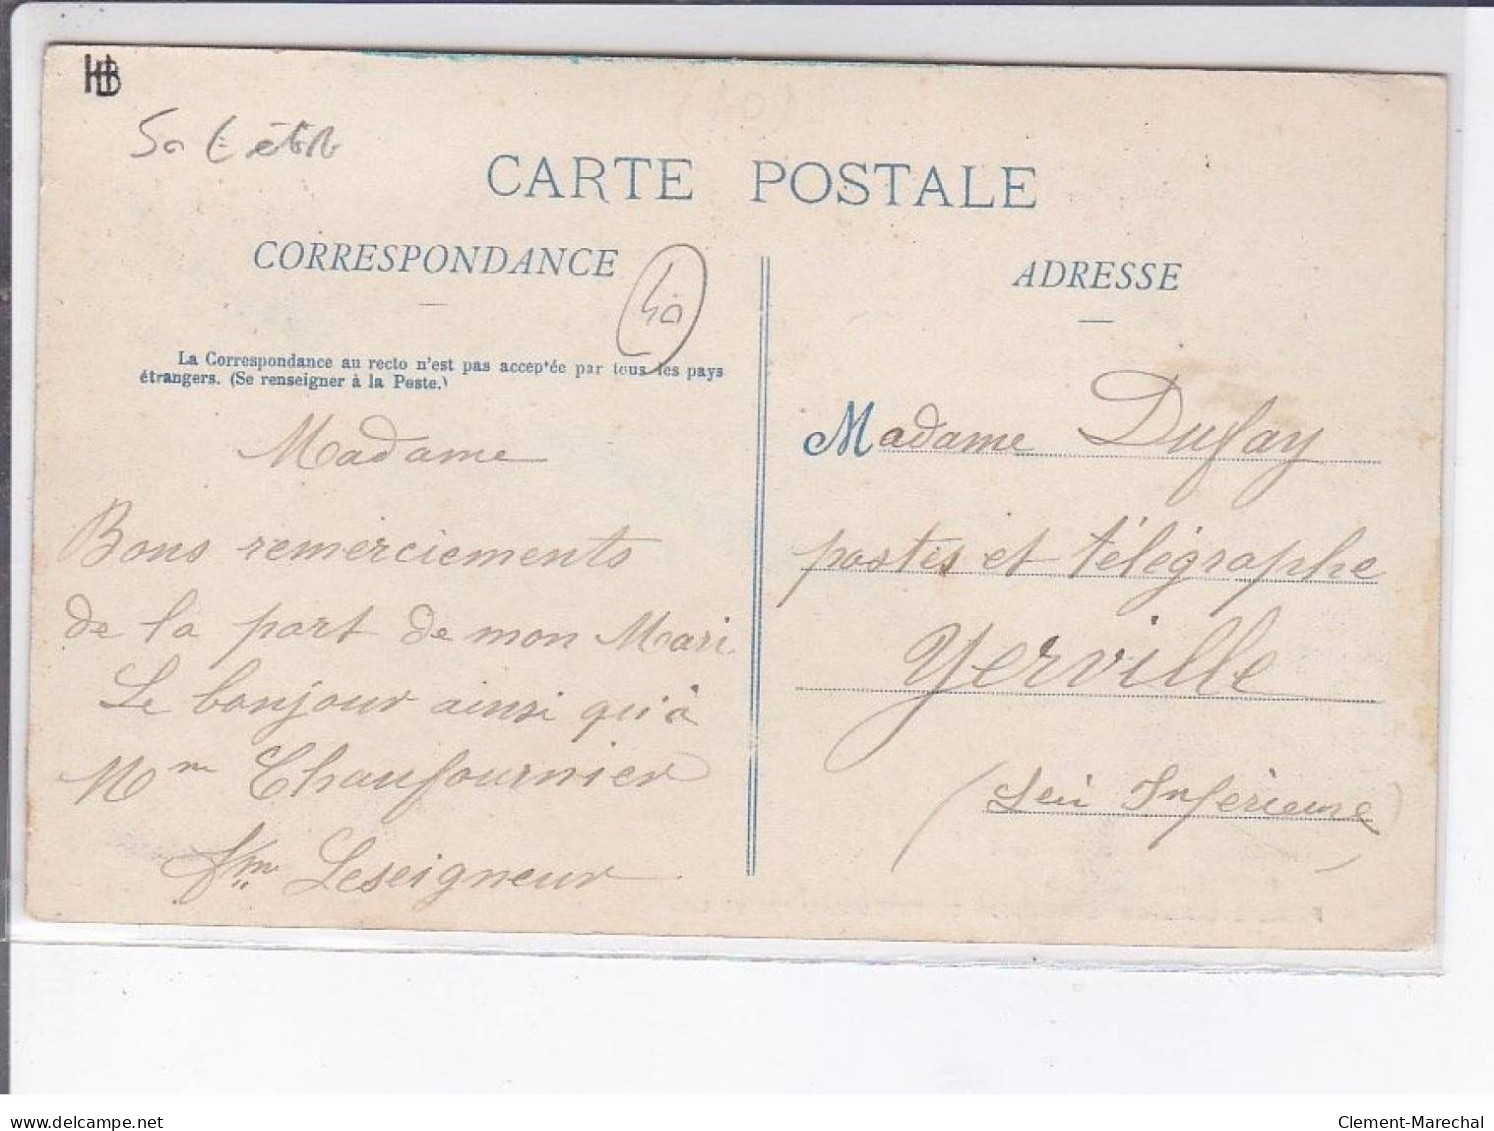 HB
CARTE POSTALE
CORRESPONDANCE
40
La Correspondance au recto n'est pas acceptée par tous les pays
étrangers. (Se renseigner à la Poste.)
Madame
Bons remerciements
de la part de mon Mari.
Le bonjour ainsi qu'à
Mm Chaufournier
Leseigneur
ADRESSE
Madame Dufay
postes et télégraphe
Yerville
(Sei Inférieure)
delcampe.net
Clement-Marechal